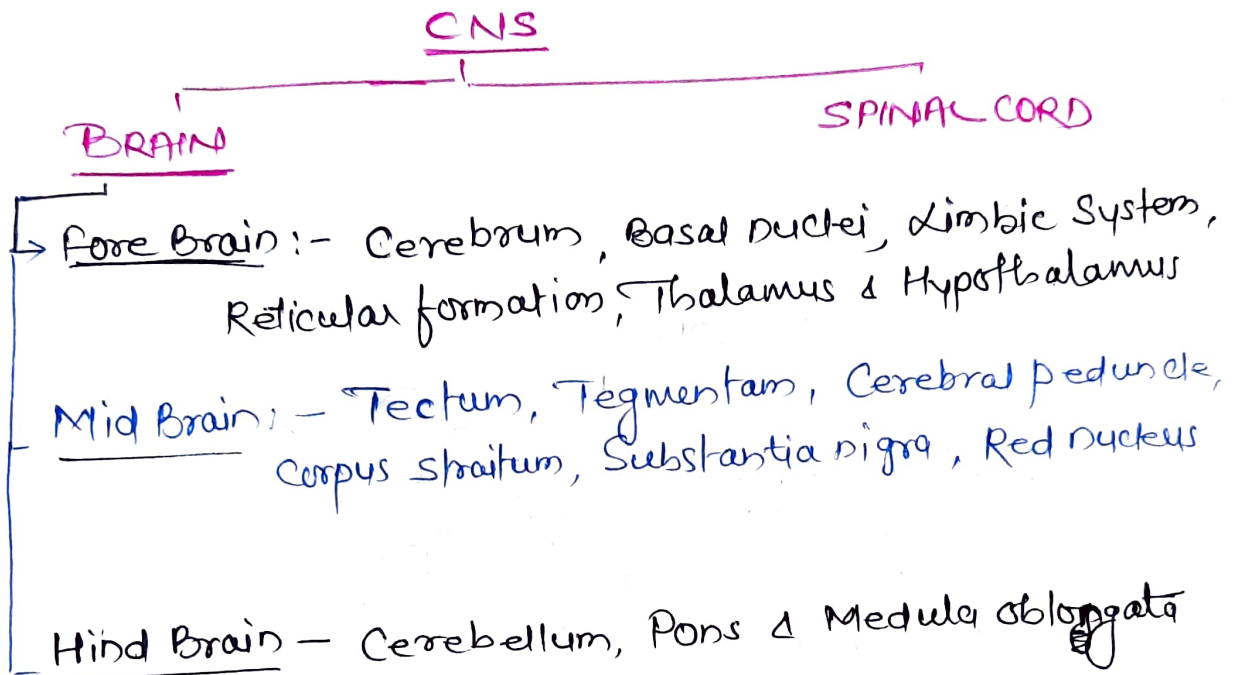 CNS
BRAIN
SPINAL CORD
Fore Brain :- Cerebrum, Basal nuclei, Limbic System,
Reticular formation, Thalamus & Hypothalamus
Mid Brain :- Tectum, Tegmentam, Cerebral peduncle,
Corpus straitum, Substantia nigra, Red nucleus
Hind Brain - Cerebellum, Pons & Medula oblongata